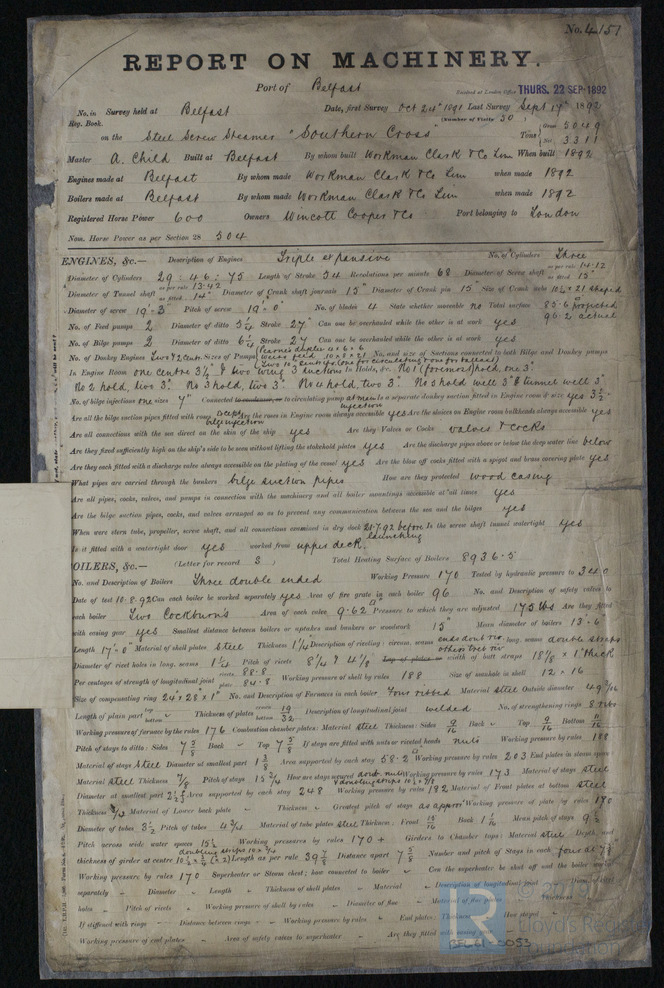 No. 4151
REPORT ON MACHINERY.
Port of Belfast
Received at London Office THURS. 22 SEP. 1892
No. in Survey held at Belfast Date, first Survey Oct 24th 1891 Last Survey Sept 19th 1892
Reg. Book. (Number of Visits 50)
on the Steel Screw Steamer "Southern Cross" Tons Gross 5049 Net 3311
Master A. Child Built at Belfast By whom built Workman Clark & Co Lim When built 1892
Engines made at Belfast By whom made Workman Clark & Co Lim when made 1892
Boilers made at Belfast By whom made Workman Clark & Co Lim when made 1892
Registered Horse Power 600 Owners Wincott Cooper & Co Port belonging to London
Nom. Horse Power as per Section 28 504
ENGINES, &c.— Description of Engines Triple expansive No. of Cylinders Three
Diameter of Cylinders 29 : 46 : 75 Length of Stroke 54 Revolutions per minute 68 Diameter of Screw shaft as per rule 14.12 as fitted 15"
Diameter of Tunnel shaft as per rule 13.42 as fitted 14" Diameter of Crank shaft journals 15" Diameter of Crank pin 15" Size of Crank webs 10½ × 21 shaped
Diameter of screw 19'-3" Pitch of screw 19'-0" No. of blades 4 State whether moveable no Total surface 85.6 projected 96.2 actual
No. of Feed pumps 2 Diameter of ditto Stroke 27" Can one be overhauled while the other is at work yes
No. of Bilge pumps 2 Diameter of ditto Stroke 27 Can one be overhauled while the other is at work yes
No. of Donkey Engines Sizes of Pumps No. and size of Suctions connected to both Bilge and Donkey pumps
In Engine Room one centre 3½" & two wing 3" suctions In Holds, &c. No 1 (foremost) hold, one 3"
No 2 hold, two 3". No 3 hold, two 3". No 4 hold, two 3". No 5 hold well 3" & tunnel well 3"
No. of bilge injections one sizes 7" Connected to condenser, or to circulating pump Is a separate donkey suction fitted in Engine room & size yes 3½"
Are all the bilge suction pipes fitted with roses except bilge injection Are the roses in Engine room always accessible yes Are the sluices on Engine room bulkheads always accessible yes
Are all connections with the sea direct on the skin of the ship yes Are they Valves or Cocks valves & cocks
Are they fixed sufficiently high on the ship's side to be seen without lifting the stokehold plates yes Are the discharge pipes above or below the deep water line below
Are they each fitted with a discharge valve always accessible on the plating of the vessel yes Are the blow off cocks fitted with a spigot and brass covering plate yes
What pipes are carried through the bunkers bilge suction pipes How are they protected wood casing
Are all pipes, cocks, valves, and pumps in connection with the machinery and all boiler mountings accessible at all times yes
Are the bilge suction pipes, cocks, and valves arranged so as to prevent any communication between the sea and the bilges yes
When were stern tube, propeller, screw shaft, and all connections examined in dry dock 21.7.92 before launching Is the screw shaft tunnel watertight yes
Is it fitted with a watertight door yes worked from upper deck
OILERS, &c.— (Letter for record S) Total Heating Surface of Boilers 8936.5
No. and Description of Boilers Three double ended Working Pressure 170 Tested by hydraulic pressure to 340
Date of test 10.8.92 Can each boiler be worked separately yes Area of fire grate in each boiler 96 No. and Description of safety valves to
each boiler Two Cockburn's Area of each valve 9.62 Pressure to which they are adjusted 175 lbs Are they fitted
with easing gear yes Smallest distance between boilers or uptakes and bunkers or woodwork 15" Mean diameter of boilers 13-6
Length 17'-0" Material of shell plates Steel Thickness 1¼ Description of riveting: circum. seams ends doub riv. others treb riv long. seams double straps
Diameter of rivet holes in long. seams 1¼ Pitch of rivets 8¼ & 4⅛ width of butt straps 18⅞ × 1" thick
Per centages of strength of longitudinal joint rivets 88.8 plate 84.8 Working pressure of shell by rules 188 Size of manhole in shell 12 × 16
Size of compensating ring 24" × 28" × 1" No. and Description of Furnaces in each boiler Four ribbed Material steel Outside diameter
Length of plain part top bottom Thickness of plates crown bottom 19/32 Description of longitudinal joint welded No. of strengthening rings 8 ribs
Working pressure of furnace by the rules 176 Combustion chamber plates: Material steel Thickness: Sides 9/16 Back Top 9/16 Bottom 11/16
Pitch of stays to ditto: Sides 7⅝ Back Top 7⅝ If stays are fitted with nuts or riveted heads nuts Working pressure by rules 188
Material of stays Steel Diameter at smallest part 1⅜ Area supported by each stay 58.2 Working pressure by rules 203 End plates in steam space:
Material steel Thickness ⅞ Pitch of stays 15¾ How are stays secured doub. nuts Working pressure by rules 173 Material of stays steel
Diameter at smallest part Area supported by each stay 248 Working pressure by rules 192 Material of Front plates at bottom steel
Thickness Material of Lower back plate Thickness Greatest pitch of stays as appror Working pressure of plate by rules 178
Diameter of tubes 3½ Pitch of tubes 4¾ Material of tube plates steel Thickness: Front Back Mean pitch of stays 9½
Pitch across wide water spaces Working pressures by rules 170 + Girders to Chamber tops: Material steel Depth and
thickness of girder at centre Length as per rule 39¾ Distance apart 7⅝ Number and pitch of Stays in each
Working pressure by rules 170 Superheater or Steam chest; how connected to boiler Can the superheater be shut off and the boiler worked
separately Diameter Length Thickness of shell plates Material Description of longitudinal joint
holes Pitch of rivets Working pressure of shell by rules Diameter of flue Material of flue plates Thickness
If stiffened with rings Distance between rings Working pressure by rules End plates: Thickness How stayed
Working pressure of end plates Area of safety valves to superheater Are they fitted with easing gear
BEL61-0053